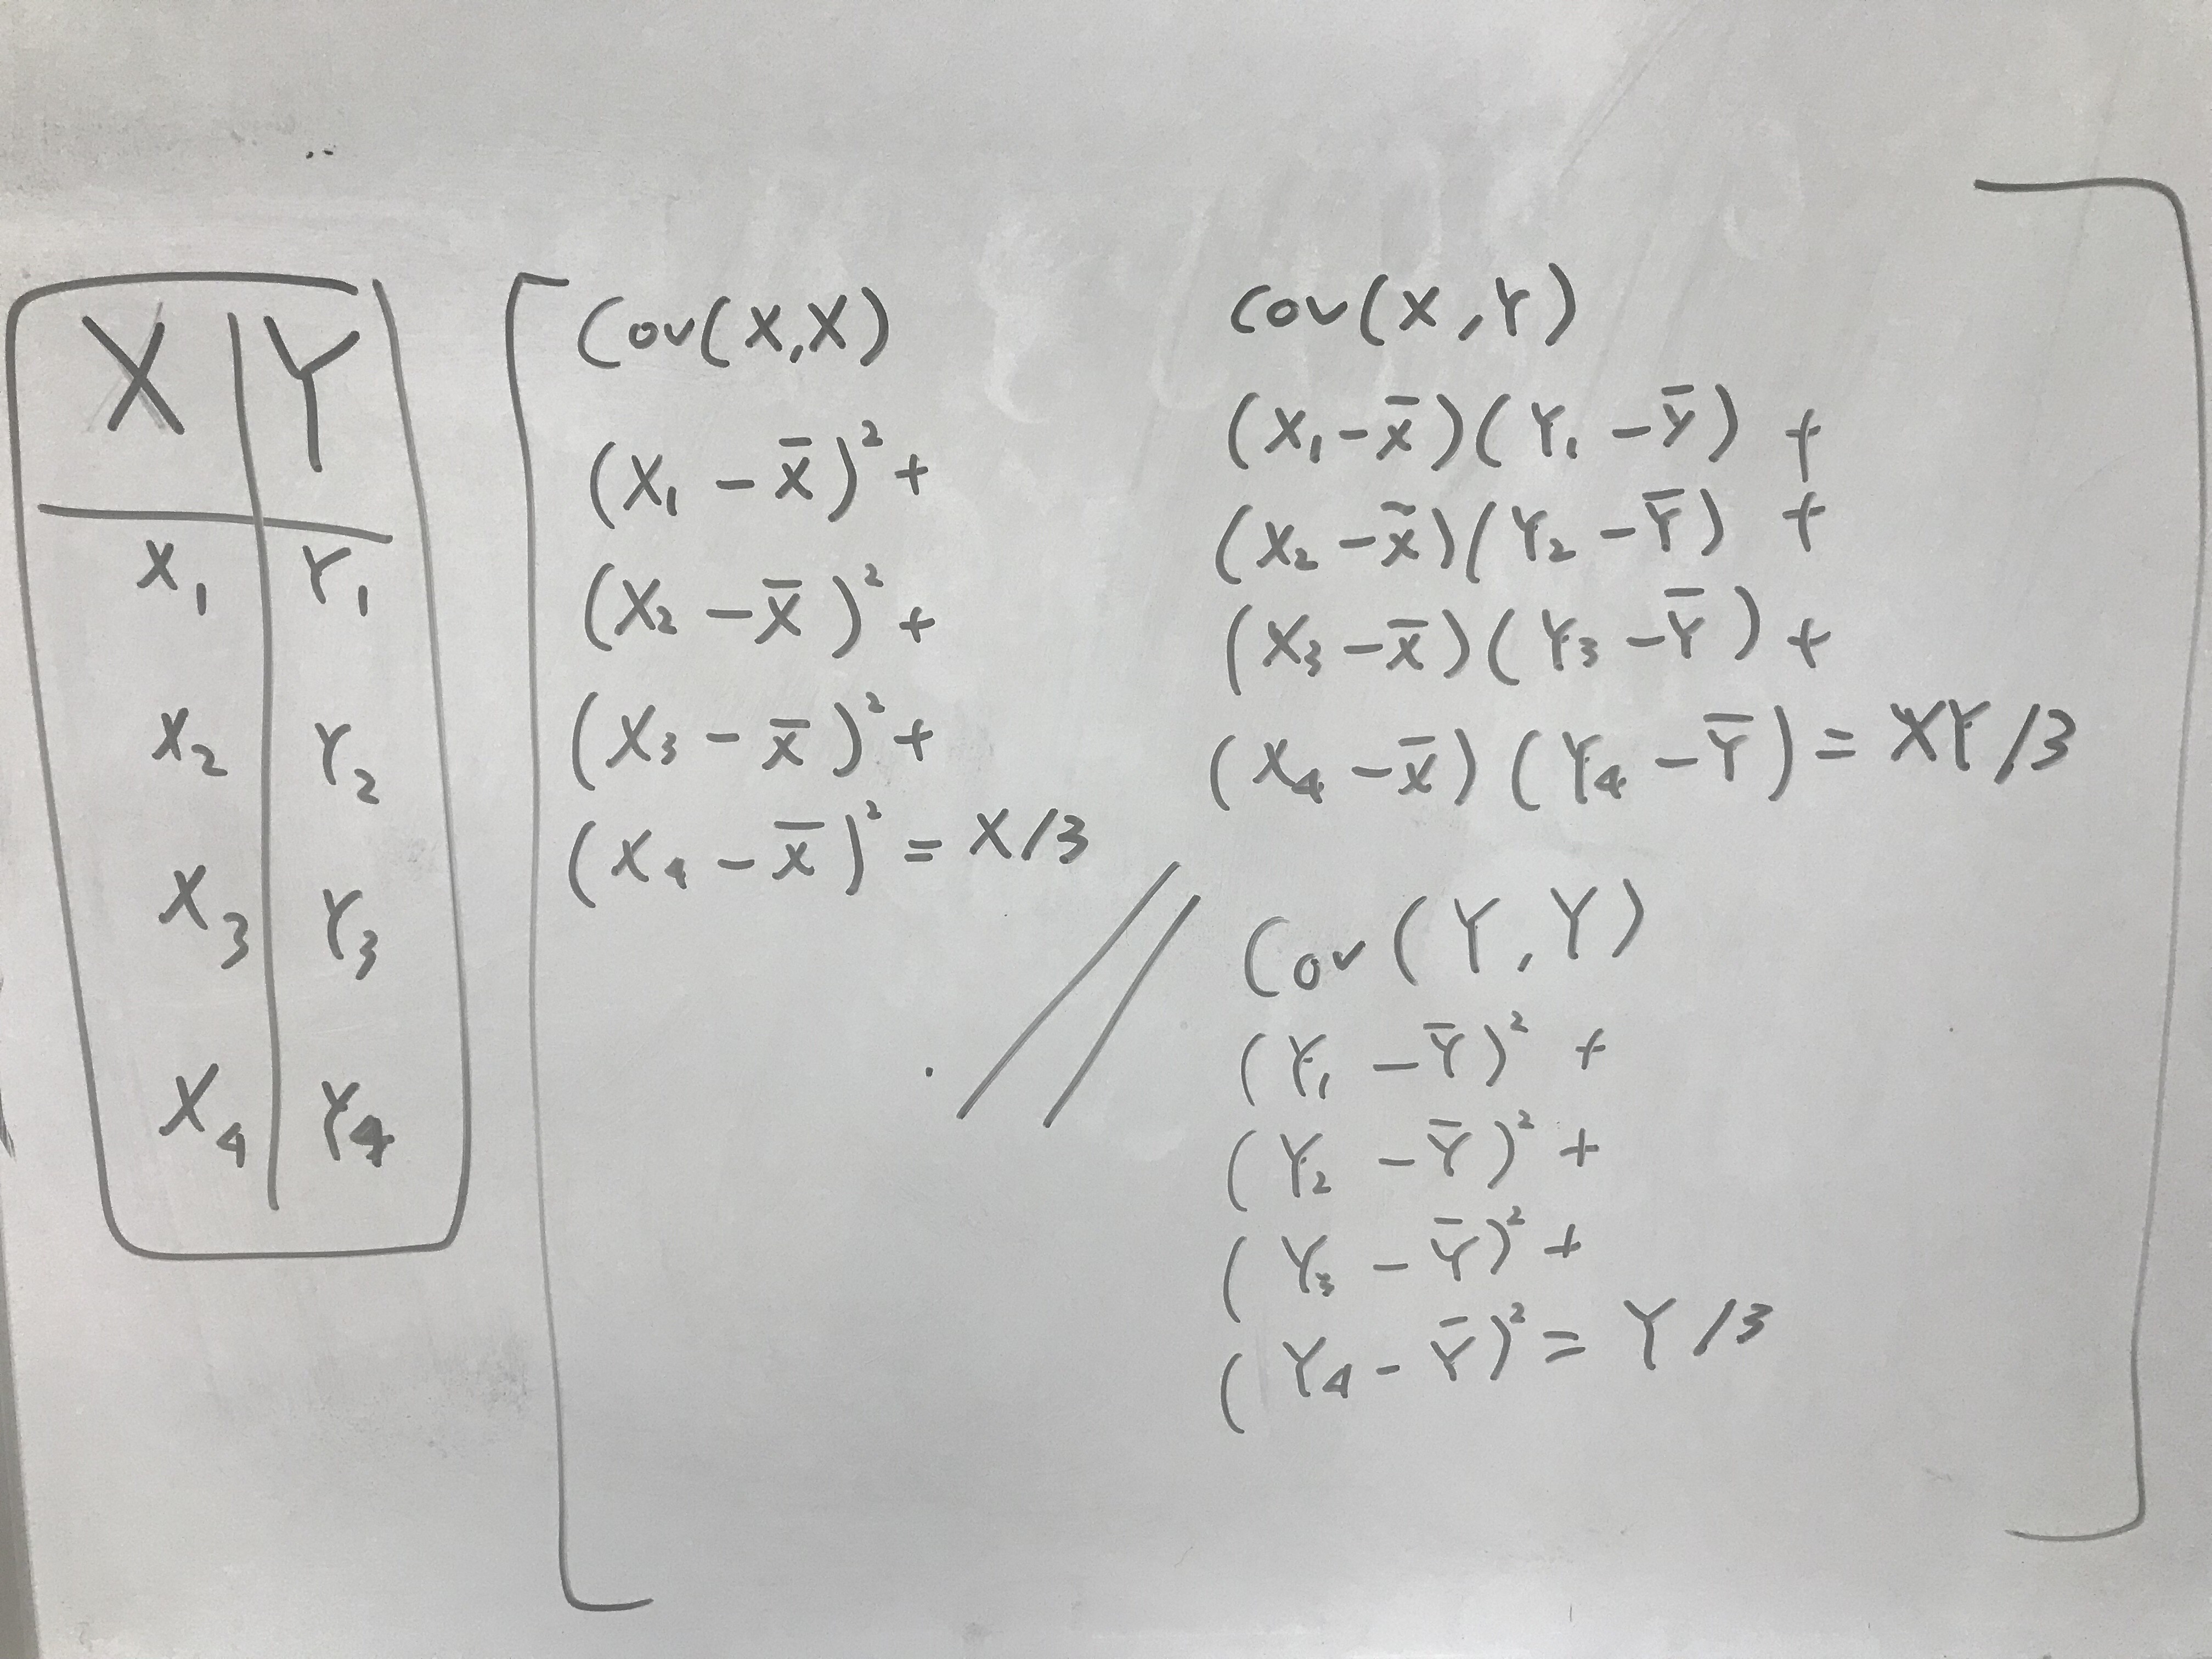 X Y
X₁ Y₁
X₂ Y₂
X₃ Y₃
X₄ Y₄
Cov(X,X)
(X₁ - X̄)² +
(X₂ - X̄)² +
(X₃ - X̄)² +
(X₄ - X̄)² = X/3
Cov(X,Y)
(X₁ - X̄)(Y₁ - Ȳ) +
(X₂ - X̄)(Y₂ - Ȳ) +
(X₃ - X̄)(Y₃ - Ȳ) +
(X₄ - X̄)(Y₄ - Ȳ) = XY/3
//
Cov(Y,Y)
(Y₁ - Ȳ)² +
(Y₂ - Ȳ)² +
(Y₃ - Ȳ)² +
(Y₄ - Ȳ)² = Y/3